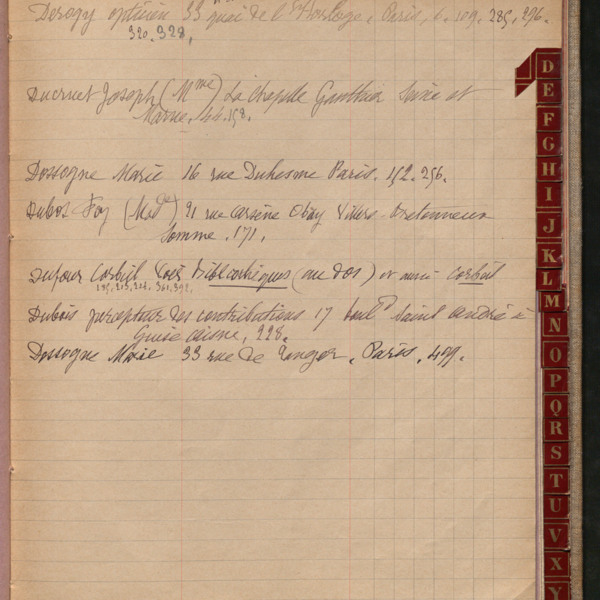 Derogy opticien 33 quai de l'Horloge, Paris, 6. 109. 285, 296.
320. 328,
Ducruet Joseph (Mme) La Chapelle Gauthier Seine et
Marne. 44. 158.
Dossogne Marie 16 rue Duhesme Paris. 152. 256.
Dubos Foy (Made) 91 rue Obry Villers-Bretonneux
Somme. 171.
Dufour Corbeil (au dos) corbeil
Dubois percepteur des contributions 17 boulD Saint André à
Guise aisne, 228.
Dossogne Marie 33 rue de Tanger, Paris, 499.
D
E
F
G
H
I
J
K
L
M
N
O
P
Q
R
S
T
U
V
X
Y